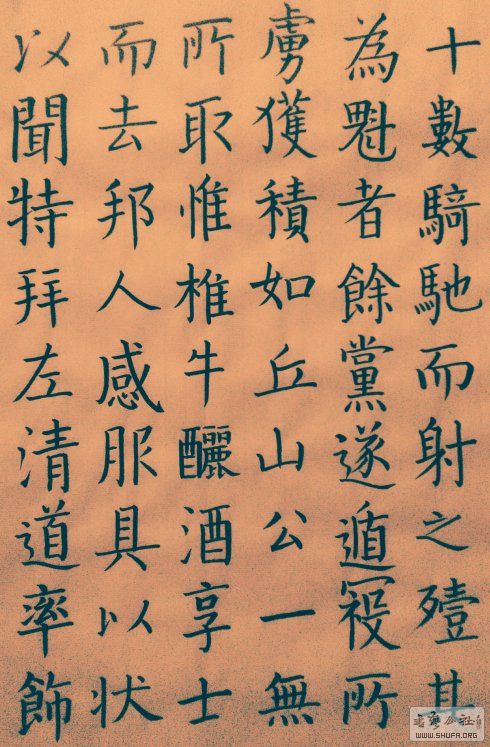 十數騎馳而射之殪其
為魁者餘黨遂遁冦所
虜獲積如丘山公一無
所取惟椎牛釃酒享士
而去邦人感服具以状
以聞特拜左清道率飾
書藝公社
WWW.SHUFA.ORG